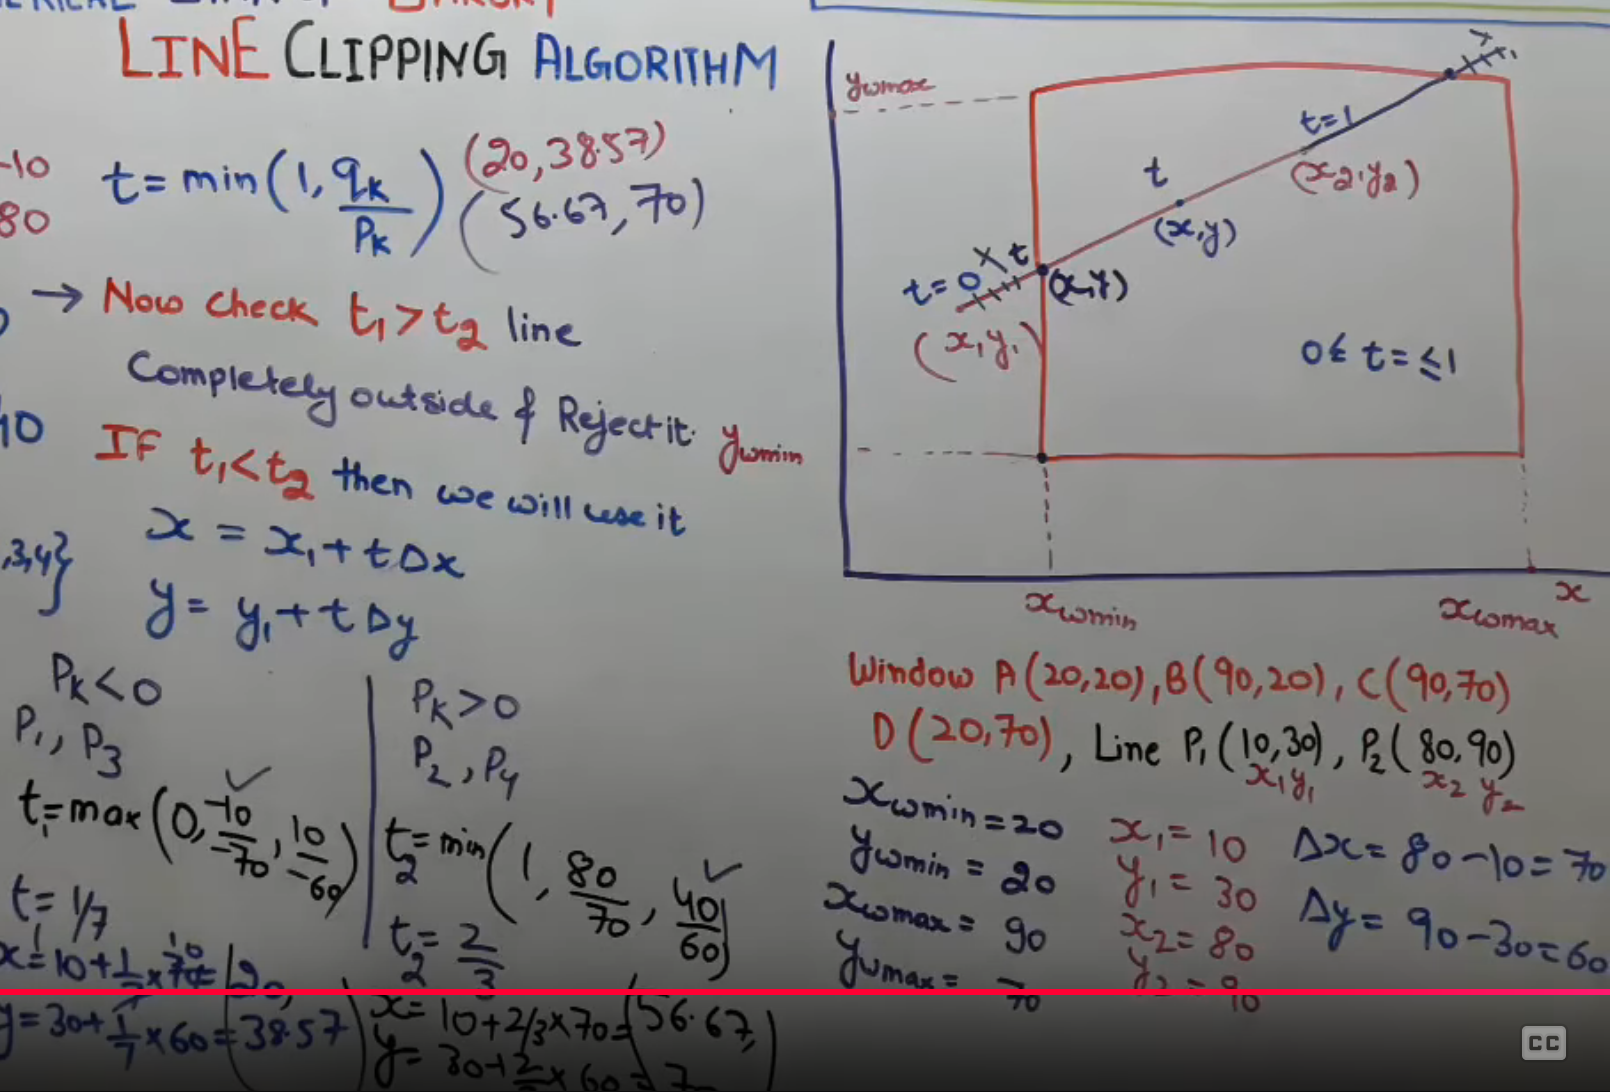 LINE CLIPPING ALGORITHM
-10
80
t = min(1, qK/PK)
(20, 38.57)
(56.67, 70)
→ Now check t1 > t2 line
Completely outside & Reject it.
10
IF t1 < t2 then we will use it
,3,4}
x = x1 + tΔx
y = y1 + tΔy
PK < 0
P1, P3
t1 = max(0, -10/-70, 10/-60)
t1 = 1/7
x = 10 + 1/7 × 70 = (20,
y = 30 + 1/7 × 60 = 38.57)
PK > 0
P2, P4
t2 = min(1, 80/70, 40/60)
t2 = 2/3
x = 10 + 2/3 × 70 = (56.67,
y = 30 + 2/3 × 60 = 7
ywmax
t=1
(x2, y2)
t
(x, y)
t
t=0
(x, y)
(x1 y1)
0 ≤ t = ≤ 1
ywmin
xwmin
xwmax
x
Window A(20,20), B(90,20), C(90,70)
D(20,70), Line P1(10,30), P2(80,90)
x1 y1
x2 y2
xwmin = 20
ywmin = 20
xwmax = 90
ywmax = 70
x1 = 10
y1 = 30
x2 = 80
y2 = 90
Δx = 80 - 10 = 70
Δy = 90 - 30 = 60
CC